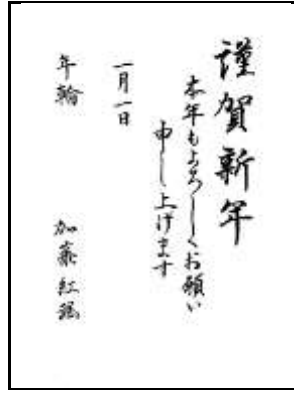 謹賀新年
本年もよろしくお願い
申し上げます
一月一日
年輪 加藤紅